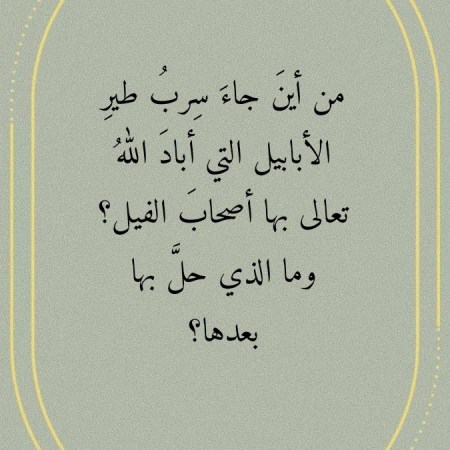 من أينَ جاءَ سِربُ طيرِ
الأبابيل التي أبادَ اللهُ
تعالى بها أصحابَ الفيل؟
وما الذي حلَّ بها
بعدها؟